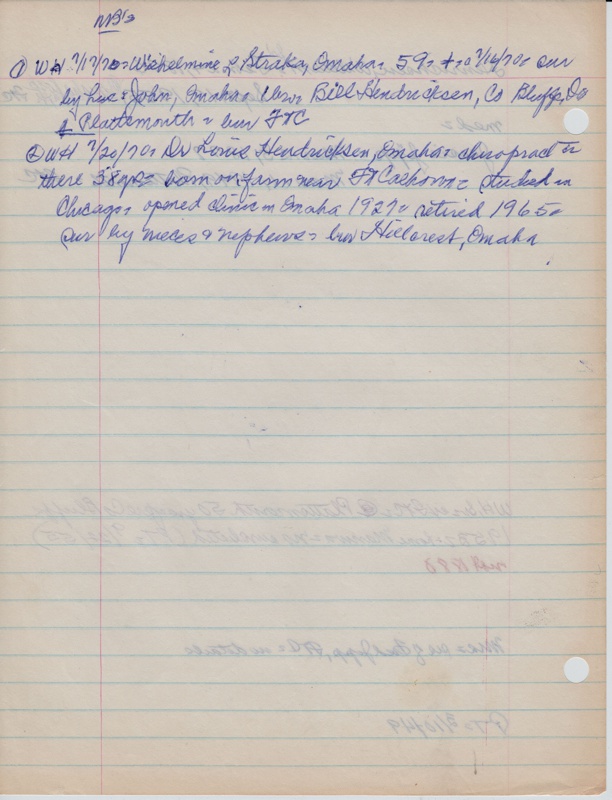 NB's
① WH 7/17/70 = Wilhelmine L Straka, Omaha = 59 = + = 7/16/70 = sur
by hus = John, Omaha = bros = Bill Hendricksen, Co Bluffs, Ia
& Plattsmouth = bur FTC
② WH 7/20/70 = Dr Louis Hendricksen, Omaha = chiropractor
there 38 yrs = born on farm near Ft Calhoun = studied in
Chicago = opened clinic in Omaha 1927 = retired 1965 =
sur by nieces & nephews = bur Hillcrest, Omaha